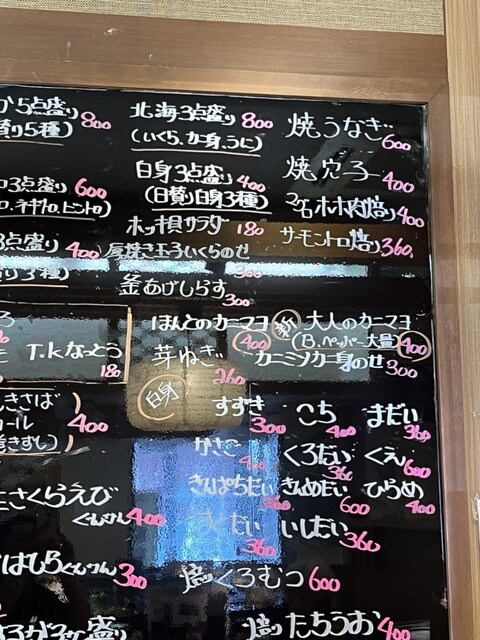 5点盛り 800
5種)
北海3点盛り 800
(いくら、カニ身、うに)
焼うなぎ 600
白身3点盛り 400
(日替り白身3種)
焼穴子 400
3点盛り 600
ホッ貝サラダ 180
400
サーモントロ焙り 360
3点盛り 400
厚焼き玉子いくらのせ
3種)
釜あげしらす 300
ほんとのカニマヨ 400
新 大人のカニマヨ
(B.ペッパー大量) 400
T.kなっとう 180
芽ねぎ 260
カニミソカニ身のせ 300
きさば
400
白身
すずき 300
こち 400
まだい 360
かさご
くろだい 360
くえ 600
きんぱちだい
きんめだい 600
ひらめ 400
さくらえび
ぐんかん 400
360
いしだい 360
はしらぐんかん 300
焙りくろむつ 600
盛り
焙りたちうお 400